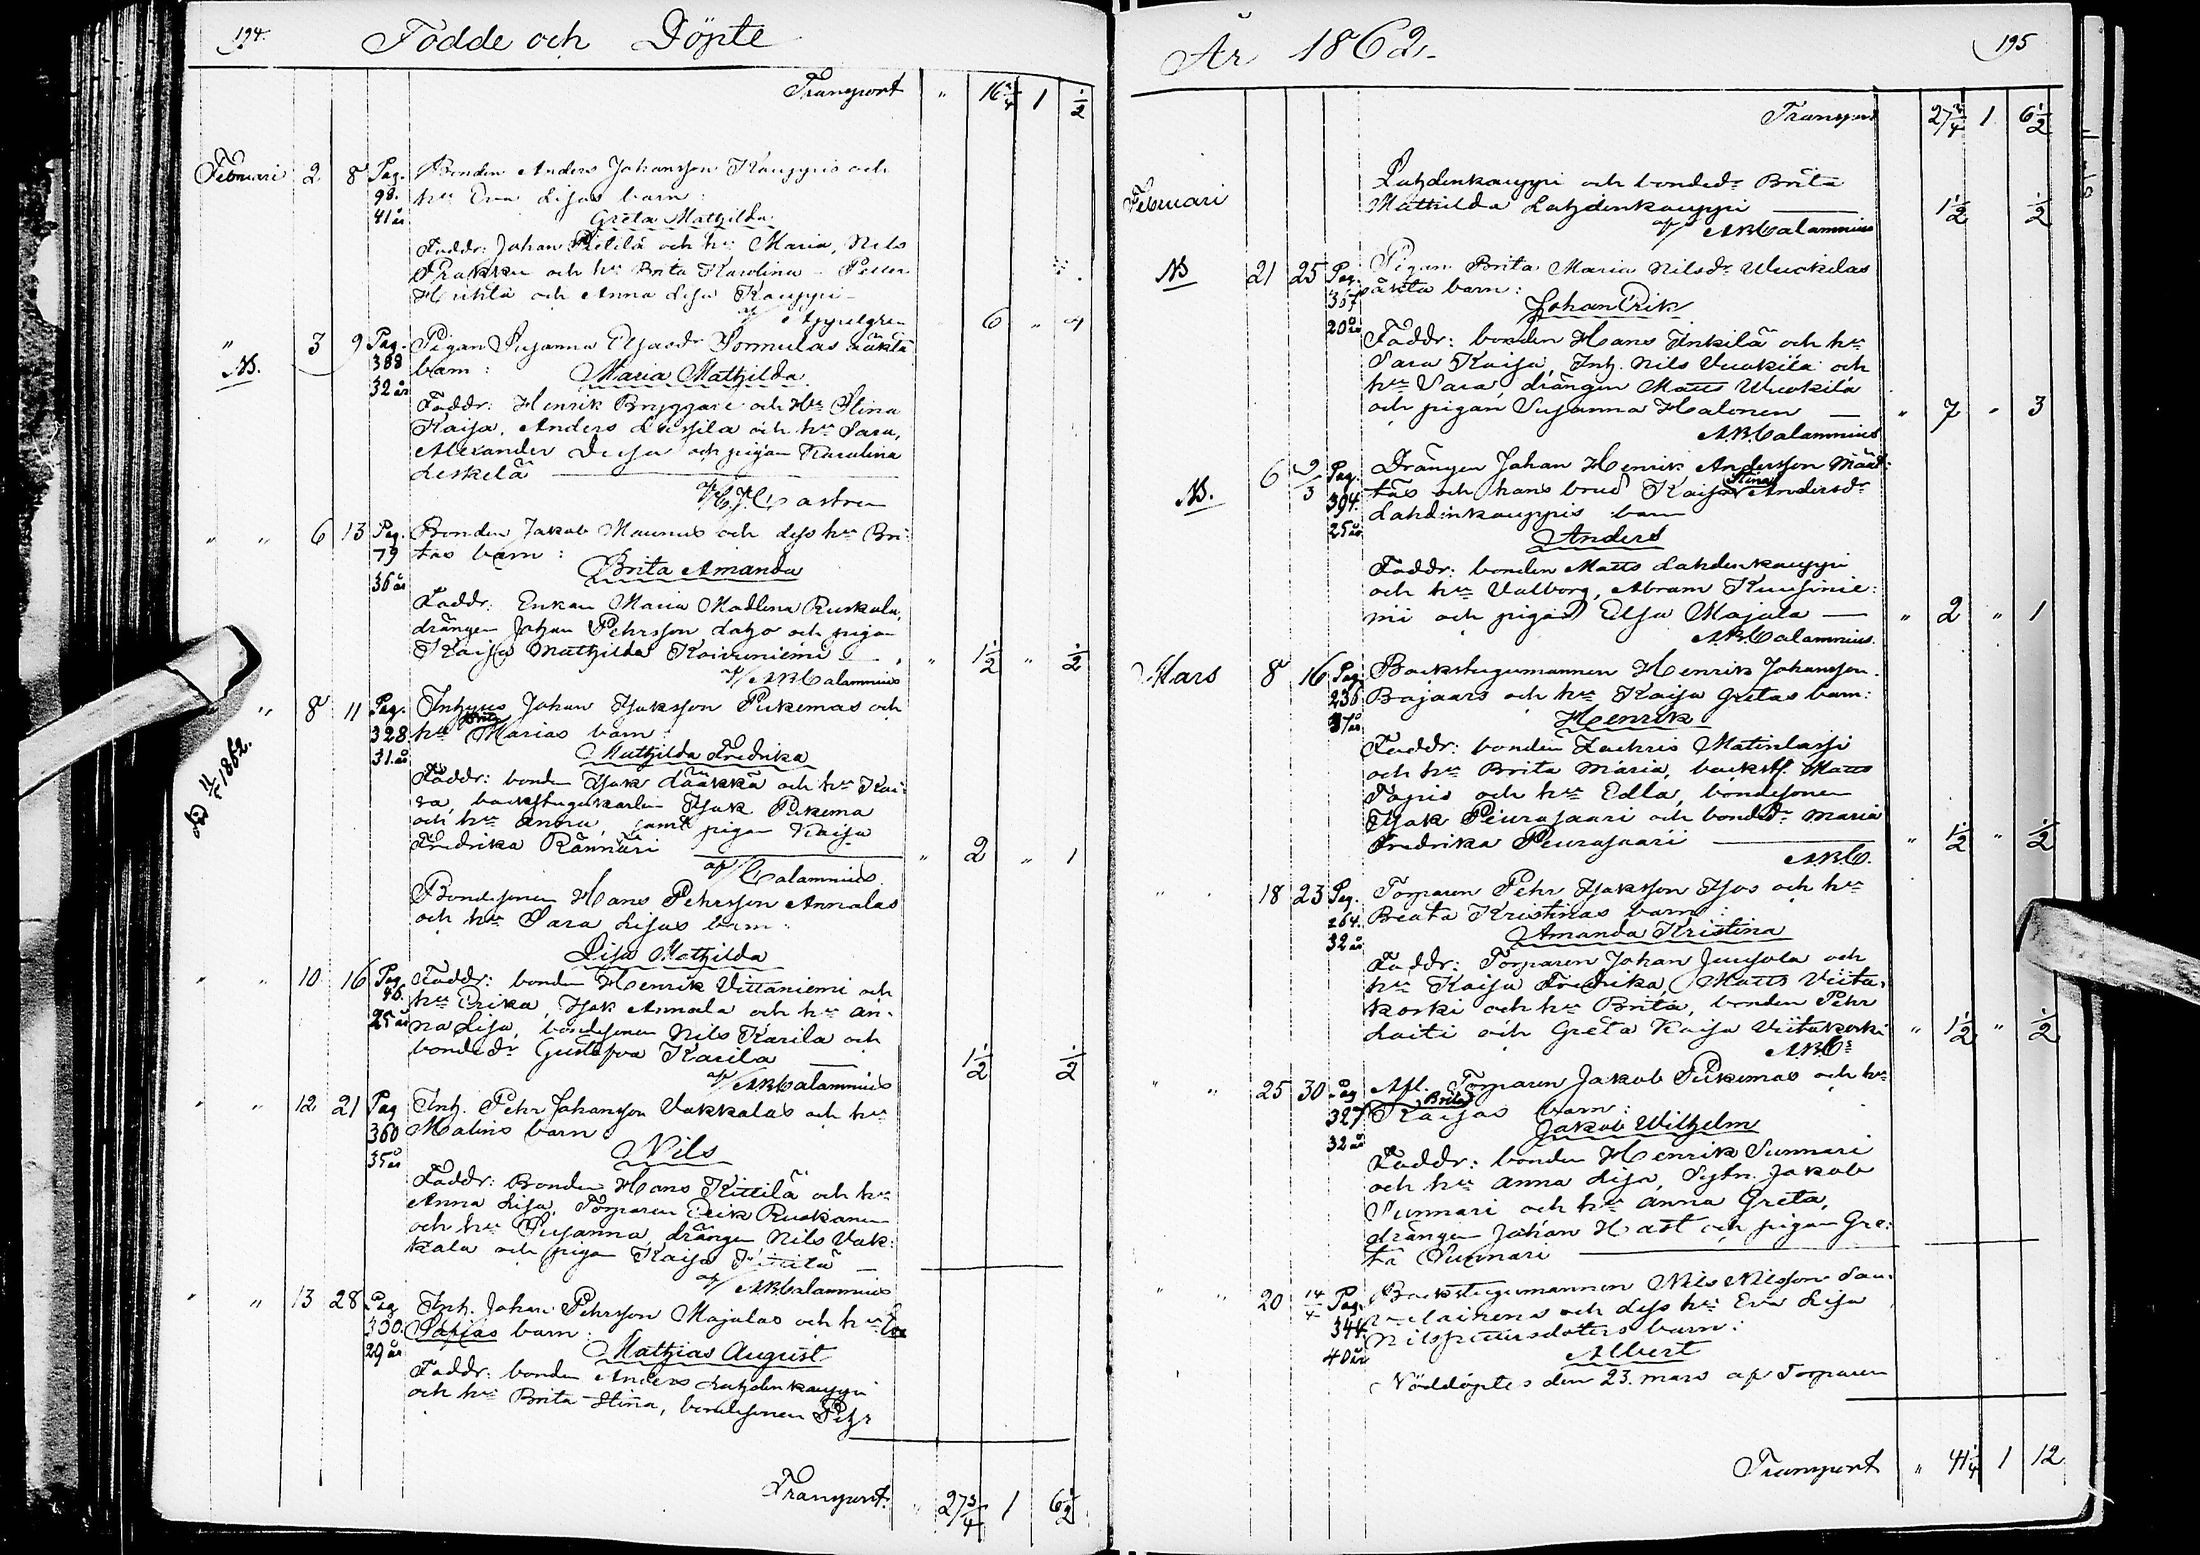 194.
Födde och Döpte
Transport " 16 3/4 1 1/2
Februari 2 8 Pag. Bonden Anders Johansson Kauppis och
98. hu Eva Lisas barn:
41 år Greta Mathilda
Faddr: Johan Pietilä och hu Maria, Nils
och hu Brita Karolina – Petter
och Anna Lisa Kauppi –
af/ Appelgren 6 " 4
" 3 9 Pag. Pigan Susanna Eljasdr Sormulas oäkta
NB. 388 barn:
32 år Maria Mathilda
Faddr: Henrik Bryggare och Hu Stina
Kaisa, Anders Lassila och hu Sara,
Alexander och pigan Karolina
Leskelä
af/ Castren
" " 6 13 Pag. Bonden Jakob Maunus och dess hu Bri-
79 tas barn:
36 år Brita Amanda
Faddr: Enkan Maria Madlena Ruskala,
drängen Johan Pehrsson Laho och pigan
Kaisa Mathilda Koivuniemi " 1 1/2 " 1/2
af/ ABCalamnius
" 8 11 Pag. Inhyses Johan Isaksson Pukemas och
328 hu Brita Marias barn
31. år Mathilda Fredrika
död 11/5 1862.
Faddr: bonden Isak Lääkkä och hu Kai-
sa, backstugukarlen Isak Pukema
och hu Anna, samt pigan Kaisa
Fredrika Rännäri " 2 " 1
af/ Calamnius.
Bondesonen Hans Pehrsson Annalas
och hu Sara Lisas barn:
Lisa Mathilda
" " 10 16 Pag. Faddr: bonden Henrik Vittaniemi och
46. hu Erika, Isak Annala och hu An-
25 år na Lisa, bondesonen Nils Karila och
bondedr Gustafva Karila 1 1/2 1/2
af/ ABCalamnius
" " 12 21 Pag Inh. Pehr Johansson Vakkalas och hu
360 Malins barn
35 år Nils
Faddr: Bonden Hans Kittilä och hu
Anna Lisa, Torparen Erik Ruokanen
och hu Susanna, drängen Nils Vak-
kala och pigan Kaisa Kittilä
af/ ABCalamnius
" " 13 28 Pag Inh. Johan Pehrsson Majalas och hu Eva
330. Sofias barn:
29 år Mathias August
Faddr: bonden Anders Lahdenkauppi
och hu Brita Stina, bondesonen Pehr
Transport. " 27 3/4 1 6 1/2
År 1862.
195
Transport 27 3/4 1 6 1/2
Februari Lahdenkauppi och bondedr Brita
Mathilda Lahdenkauppi 1 1/2 1/2
af/ ABCalamnius
NB 21 25 Pag. Pigan Brita Maria Nilsdr Wuokilas
357 oäkta barn:
20 år Johan Erik
Faddr: bonden Hans Inkilä och hu
Sara Kaisa, Inh. Nils Vuokila och
hu Sara, drängen Matts Wuokila
och pigan Susanna Halonen " 7 " 3
ABCalamnius
NB. 6 9/3 Pag. Drängen Johan Henrik Andersson Määt-
394. täs och hans brud Kaisa Stina Andersdr
25 år Lahdenkauppis barn
Anders
Faddr: bonden Matts Lahdenkauppi
och hu Valborg, Abram Kuusinie-
mi och pigan Elsa Majala " 2 " 1
ABCalamnius.
Mars 8 16 Pag. Backstugumannen Henrik Johansson
236 Bajaars och hu Kaisa Gretas barn:
37 år Henrik
Faddr: bonden Zachris Matinlassi
och hu Brita Maria, backst. Matts
Tapio och hu Edla, bondesonen
Isak Peurasaari och bondedr Maria
Fredrika Peurasaari " 1 1/2 " 1/2
ABC.
" " 18 23 Pag. Torparen Pehr Isaksson Isos och hu
264. Beata Kristinas barn:
32 år Amanda Kristina
Faddr: Torparen Johan Junsola och
hu Kaisa Fredrika, Matts Viita-
koski och hu Brita, bonden Pehr
Laiti och Greta Kaisa Viitakoski " 1 1/2 " 1/2
ABCs
" " 25 30 Pag Afl. Torparen Jakob Pukemas och hu
327 Brita Kaisas barn:
32 år Jakob Wilhelm
Faddr: bonden Henrik Sunnari
och hu Anna Lisa, Sytn. Jakob
Sunnari och hu Anna Greta,
drängen Johan Hast och pigan Gre-
ta Sunnari
" " 20 14/4 Pag. Backstugumannen Nils Nilsson Sau-
344 och dess hu Eva Lisa
40 år barn:
Albert
Nöddöptes den 23. mars af Torparen
Transport " 41 1/4 1 12